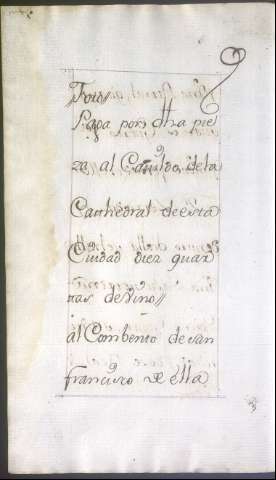 Foro//
Paga por dha pie
za al Cavildo, de la
Cathedral de esta
Ciudad diez quar
tras de Vino//
al Combento de san
francisco de ella